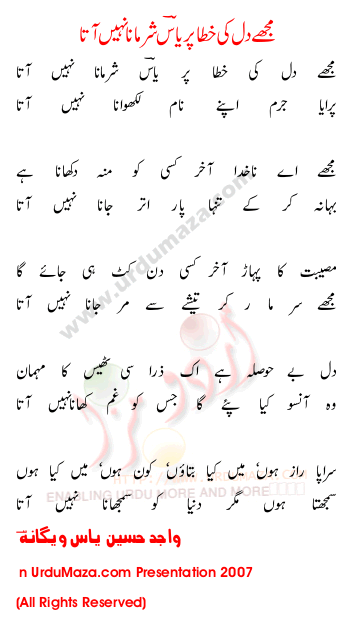 مجھے دل کی خطا پر یاسؔ شرمانا نہیں آتا
مجھے دل کی خطا پر یاسؔ شرمانا نہیں آتا
پرایا جرم اپنے نام لکھوانا نہیں آتا
مجھے اے ناخدا آخر کسی کو منہ دکھانا ہے
بہانہ کر کے تنہا پار اتر جانا نہیں آتا
مصیبت کا پہاڑ آخر کسی دن کٹ ہی جائے گا
مجھے سر مار کر تیشے سے مر جانا نہیں آتا
دل بے حوصلہ ہے اک ذرا سی ٹھیس کا مہمان
وہ آنسو کیا پئے گا جس کو غم کھانا نہیں آتا
سراپا راز ہوں' میں کیا بتاؤں' کون ہوں' میں کیا ہوں
سمجھتا ہوں مگر دنیا کو سمجھانا نہیں آتا
واجد حسین یاس و یگانہؔ
n UrduMaza.com Presentation 2007
(All Rights Reserved)
www.urdumaza.com
ENABLING URDU MORE AND MORE